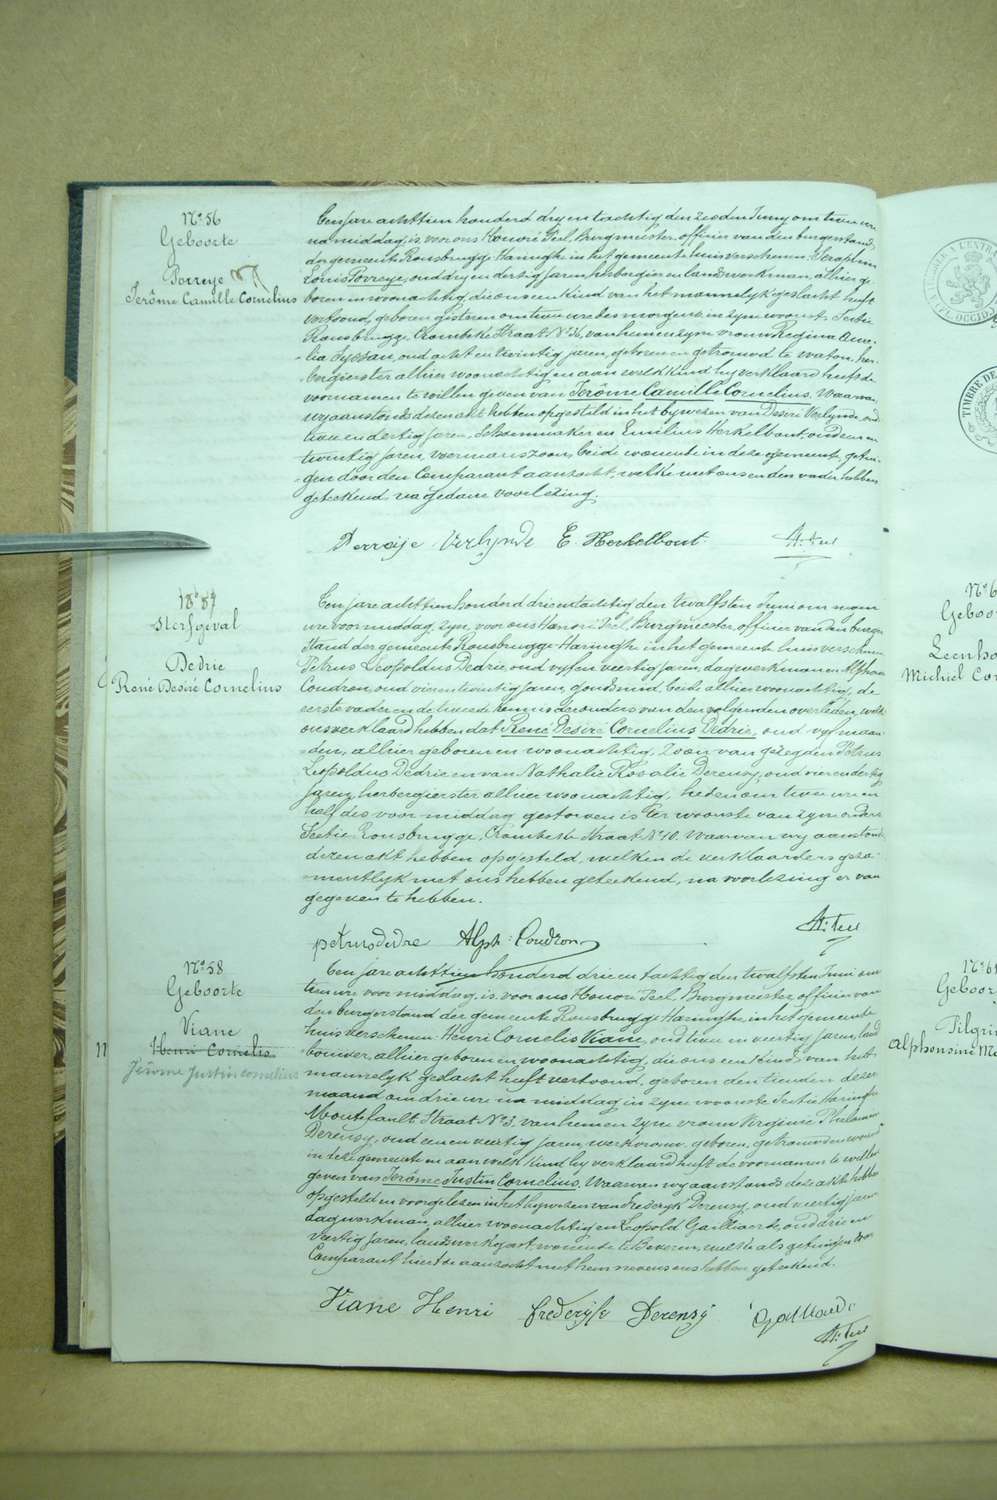 N° 56
Geboorte
Porreye
Jerôme Camille Cornelius
Een jare achttien honderd dry en tachtig den zesden Juny om twee ure
na middag, is, voor ons Honoré Peel, Burgmeester, officier van den burgerstand,
der gemeente Rousbrugge Haringhe in het gemeente huis verschenen: Seraphin
Louis Porreye, oud dry en dertig jaren, herbergier en landswerkman, alhier ge-
boren en woonachtig, die ons een kind van het mannelyk geslacht heeft
vertoond, geboren gisteren om twee ure des morgens in zyne woonst, Sectie
Rousbrugge, Crombeke Straat N° 36, van hem en zyne vrouw Regina Ame-
lia Tyssan, oud acht en twintig jaren, geboren en getrouwd te Watou, her-
bergierster alhier woonachtig, en aan welk kind hy verklaard heeft de
voornamen te willen geven van Jerôme Camille Cornelius. Waarvan
wy aanstonds dezen akt hebben opgesteld in het bywezen van Desiré Verlynde, oud
twee en dertig jaren, Schoenmaker en Emilius Herkelbout, oud een en
twintig jaren, voermanszoon, beide wonende in deze gemeente, getui-
gen door den Comparant aanzocht, welke met ons en den vader hebben
geteekend na gedane voorlezing.
Porreije Verlynde E. Herkelbout H: Peel
N° 57
Sterfgeval
Dedrie
René Desiré Cornelius
Een jare achttien honderd drie en tachtig den twalfsten Juni om negen
ure voormiddag, zyn, voor ons Honoré Peel, Burgmeester, officier van den burger
stand der gemeente Rousbrugge-Haringhe in het gemeente huis verschenen
Petrus Leopoldus Dedrie, oud vyf en veertig jaren, dagwerkman en Alphons
Coudron, oud vier en twintig jaren, goudsmid, beide alhier woonachtig, de
eerste vader en de tweede kennis der ouders van den volgenden overleden, welke
ons verklaard hebben dat René Desiré Cornelius Dedrie, oud vyf maan-
den, alhier geboren en woonachtig, zoon van gezegden Petrus
Leopoldus Dedrie en van Nathalie Rosalie Derensy, oud vier en dertig
jaren, herbergierster alhier woonachtig, heden om twee ure en
half des voormiddag gestorven is ter woonste van zyne ouders
Sectie Rousbrugge, Crombeke Straat N° 40. Waarvan wy aanstonds
dezen akt hebben opgesteld, welken de verklaarders geza-
mentlyk met ons hebben geteekend, na voorlezing er van
gegeven te hebben.
petrusdedre Alph: Coudron H: Peel
N° 58
Geboorte
Viane
Henri Cornelis
Jérôme Justin Cornelius
Een jare achttien honderd drie en tachtig den twalfsten Juni om
tien ure voormiddag, is, voor ons Honoré Peel, Burgmeester, officier van
den burgerstand der gemeente Rousbrugge Haringhe, in het gemeente
huis verschenen Henri Cornelis Viane, oud twee en veertig jaren, land
bouwer, alhier geboren en woonachtig, die ons een kind van het
mannelyk geslacht heeft vertoond, geboren den tienden dezer
maand om drie ure na middag in zyne woonste Sectie Haringhe
Moutefault Straat N° 3. van hem en zyne vrouw Virginie Philomene
Derensy, oud een en veertig jaren, werkvrouw, geboren, getrouwd en wonende
in deze gemeente en aan welk kind hy verklaard heeft de voornamen te willen
geven van Jerôme Justin Cornelius. Waarvan wy aanstonds deze akte hebben
opgesteld en voorgelezen in het bywezen van Frederyk Derensy, oud veertig jaren
dagwerkman, alhier woonachtig en Leopold Gailliaert, oud drie en
veertig jaren, landswerkgast, wonende te Beveren, welke als getuigen door
Comparant hiertoe aanzocht met hem nevens ons hebben geteekend.
Viane Henri frederijk Derensÿ H: Peel
N° 6
Geboor
Leenho
Michiel Cor
N° 6
Geboor
Pilgri
Alphonsine M
TIMBRE DE